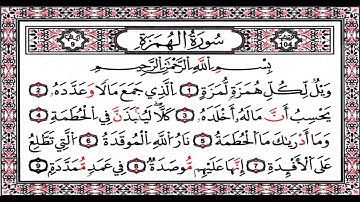 سُورَةُ الْهُمَزَةِ
104
9
بِسْمِ اللَّهِ الرَّحْمَٰنِ الرَّحِيمِ
وَيْلٌ لِّكُلِّ هُمَزَةٍ لُّمَزَةٍ 1 الَّذِي جَمَعَ مَالًا وَعَدَّدَهُ 2
يَحْسَبُ أَنَّ مَالَهُ أَخْلَدَهُ 3 كَلَّا لَيُنبَذَنَّ فِي الْحُطَمَةِ 4
وَمَا أَدْرَاكَ مَا الْحُطَمَةُ 5 نَارُ اللَّهِ الْمُوقَدَةُ 6 الَّتِي تَطَّلِعُ
عَلَى الْأَفْئِدَةِ 7 إِنَّهَا عَلَيْهِم مُّؤْصَدَةٌ 8 فِي عَمَدٍ مُّمَدَّدَةٍ 9